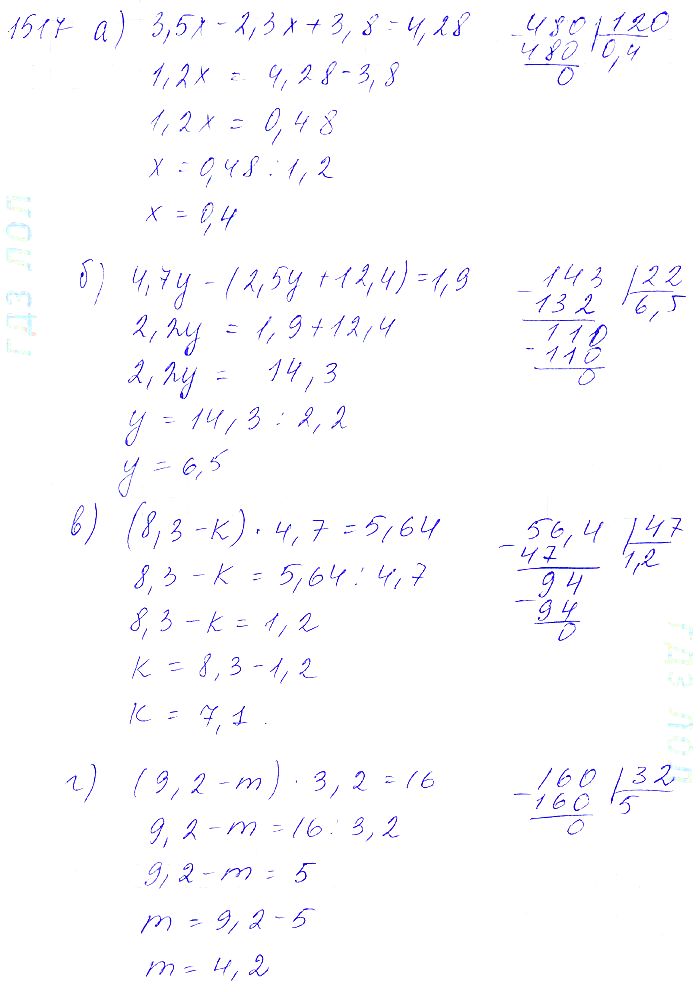 1517 а) 3,5x - 2,3x + 3,8 = 4,28
1,2x = 4,28 - 3,8
1,2x = 0,48
x = 0,48 : 1,2
x = 0,4
- 480 | 120
480 0,4
0
б) 4,7y - (2,5y + 12,4) = 1,9
2,2y = 1,9 + 12,4
2,2y = 14,3
y = 14,3 : 2,2
y = 6,5
- 143 | 22
132 6,5
110
- 110
0
в) (8,3 - к) · 4,7 = 5,64
8,3 - к = 5,64 : 4,7
8,3 - к = 1,2
к = 8,3 - 1,2
к = 7,1.
- 56,4 | 47
47 1,2
94
- 94
0
г) (9,2 - m) · 3,2 = 16
9,2 - m = 16 : 3,2
9,2 - m = 5
m = 9,2 - 5
m = 4,2
- 160 | 32
160 5
0
ГДЗ ЛОЛ
ГДЗ ЛОЛ